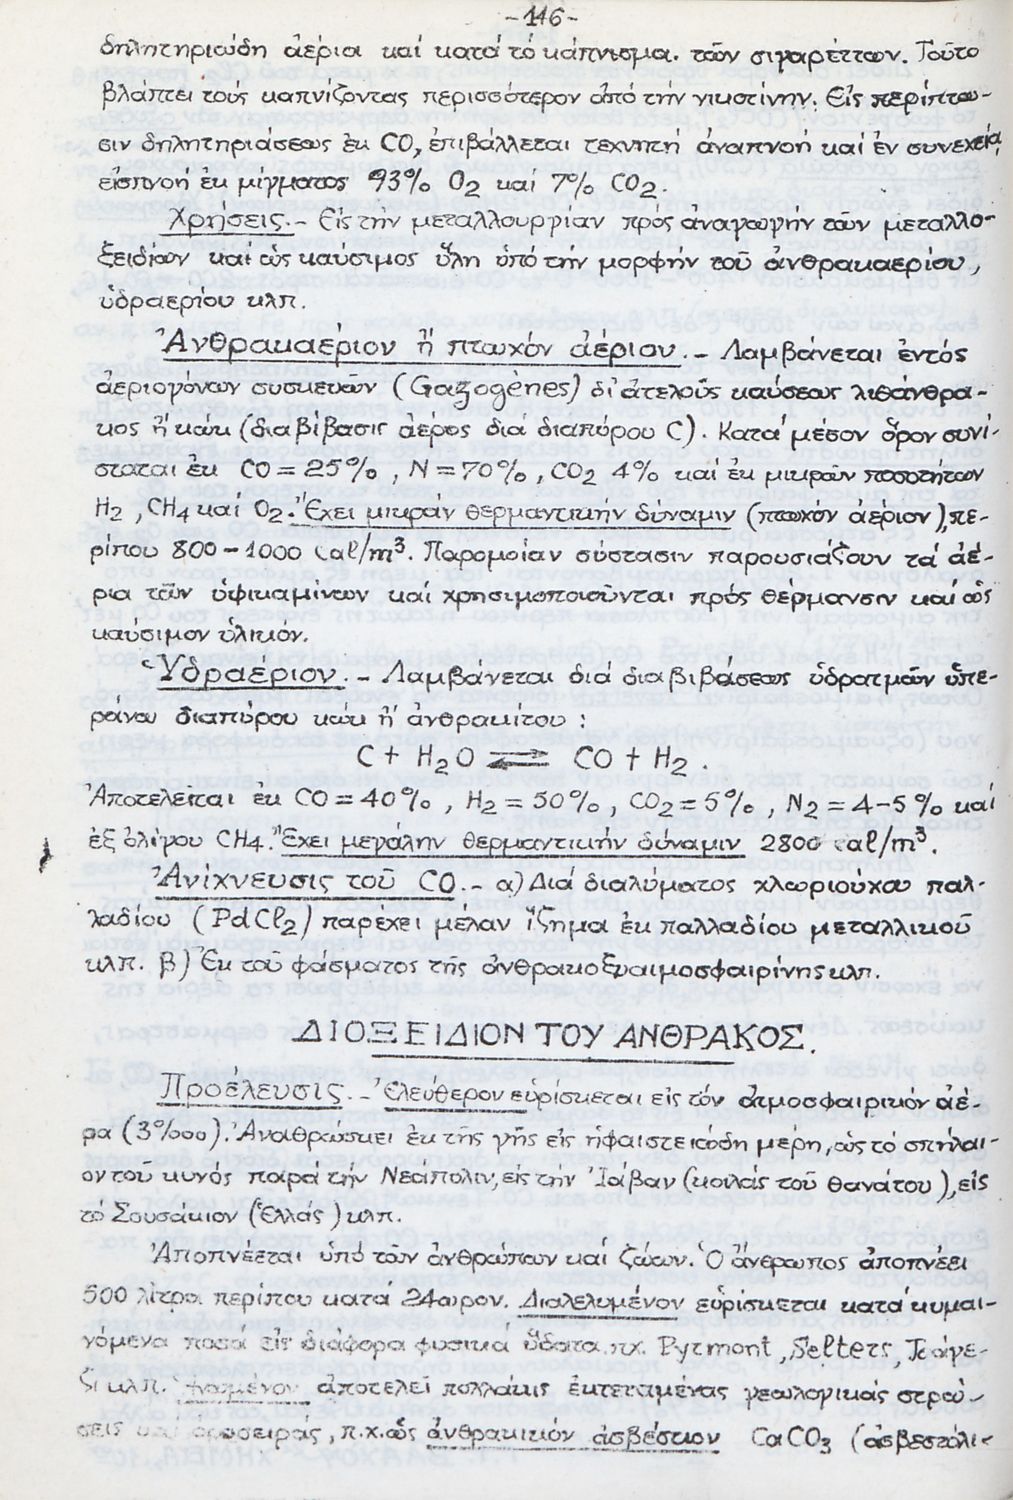 -146-
δηλητηριώδη ἀέρια καί κατά τό κάπνισμα. τῶν σιγαρέττων. Τοῦτο
βλάπτει τούς καπνίζοντας περισσότερον ἀπό τήν νικοτίνην. Εἰς περίπτω-
σιν δηλητηριάσεως ἐκ CO, ἐπιβάλλεται τεχνητή ἀναπνοή καί ἐν συνεχείᾳ
εἰσπνοή ἐκ μίγματος 93% O2 καί 7% CO2.
Χρήσεις.- Εἰς τήν μεταλλουργίαν πρός ἀναγωγήν τῶν μεταλλο-
ξειδίων καί ὡς καύσιμος ὕλη ὑπό τήν μορφήν τοῦ ἀνθρακαερίου,
ὑδραερίου κλπ.
Ἀνθρακαέριον ἤ πτωχόν ἀέριον.- Λαμβάνεται ἐντός
ἀεριογόνων συσκευῶν (Gazogènes) δι' ἀτελοῦς καύσεως λιθάνθρα-
κος ἤ κώκ (διαβίβασις ἀέρος διά διαπύρου C). Κατά μέσον ὅρον συνί-
σταται ἐκ CO=25%, N=70%, CO2 4% καί ἐκ μικρῶν ποσοτήτων
H2, CH4 καί O2. Ἔχει μικράν θερμαντικήν δύναμιν (πτωχόν ἀέριον), πε-
ρίπου 800-1000 Cal/m3. Παρομοίαν σύστασιν παρουσιάζουν τά ἀέ-
ρια τῶν ὑψικαμίνων καί χρησιμοποιοῦνται πρός θέρμανσιν καί ὡς
καύσιμον ὑλικόν.
Ὑδραέριον.- Λαμβάνεται διά διαβιβάσεως ὑδρατμῶν ὑπε-
ράνω διαπύρου κώκ ἤ ἀνθρακίτου:
C + H2O ⇌ CO + H2.
Ἀποτελεῖται ἐκ CO=40%, H2=50%, CO2=5%, N2=4-5% καί
ἐξ ὀλίγου CH4. Ἔχει μεγάλην θερμαντικήν δύναμιν 2800 cal/m3.
Ἀνίχνευσις τοῦ CO.- α) Διά διαλύματος χλωριούχου παλ-
λαδίου (PdCl2) παρέχει μέλαν ἵζημα ἐκ παλλαδίου μεταλλικοῦ
κλπ. β) Ἐκ τοῦ φάσματος τῆς ἀνθρακοξυαιμοσφαιρίνης κλπ.
ΔΙΟΞΕΙΔΙΟΝ ΤΟΥ ΑΝΘΡΑΚΟΣ.
Προέλευσις.- Ἐλεύθερον εὑρίσκεται εἰς τόν ἀτμοσφαιρικόν ἀέ-
ρα (3%οο). Ἀναθρώσκει ἐκ τῆς γῆς εἰς ἡφαιστειώδη μέρη, ὡς τό σπήλαι-
ον τοῦ κυνός παρά τήν Νεάπολιν, εἰς τήν Ἰάβαν (κοιλάς τοῦ θανάτου), εἰς
τό Σουσάκιον (Ἑλλάς) κλπ.
Ἀποπνέεται ὑπό τῶν ἀνθρώπων καί ζώων. Ὁ ἄνθρωπος ἀποπνέει
500 λίτρα περίπου κατά 24ωρον. Διαλελυμένον εὑρίσκεται κατά κυμαι-
νόμενα ποσά εἰς διάφορα φυσικά ὕδατα πχ. Pyrmont, Selters,
κλπ. ἀποτελεῖ πολλάκις ἐκτεταμένας γεωλογικάς στρώ-
σεις καί ὀροσειράς, π.χ. ὡς ἀνθρακικόν ἀσβέστιον CaCO3 (ἀσβεστόλι-